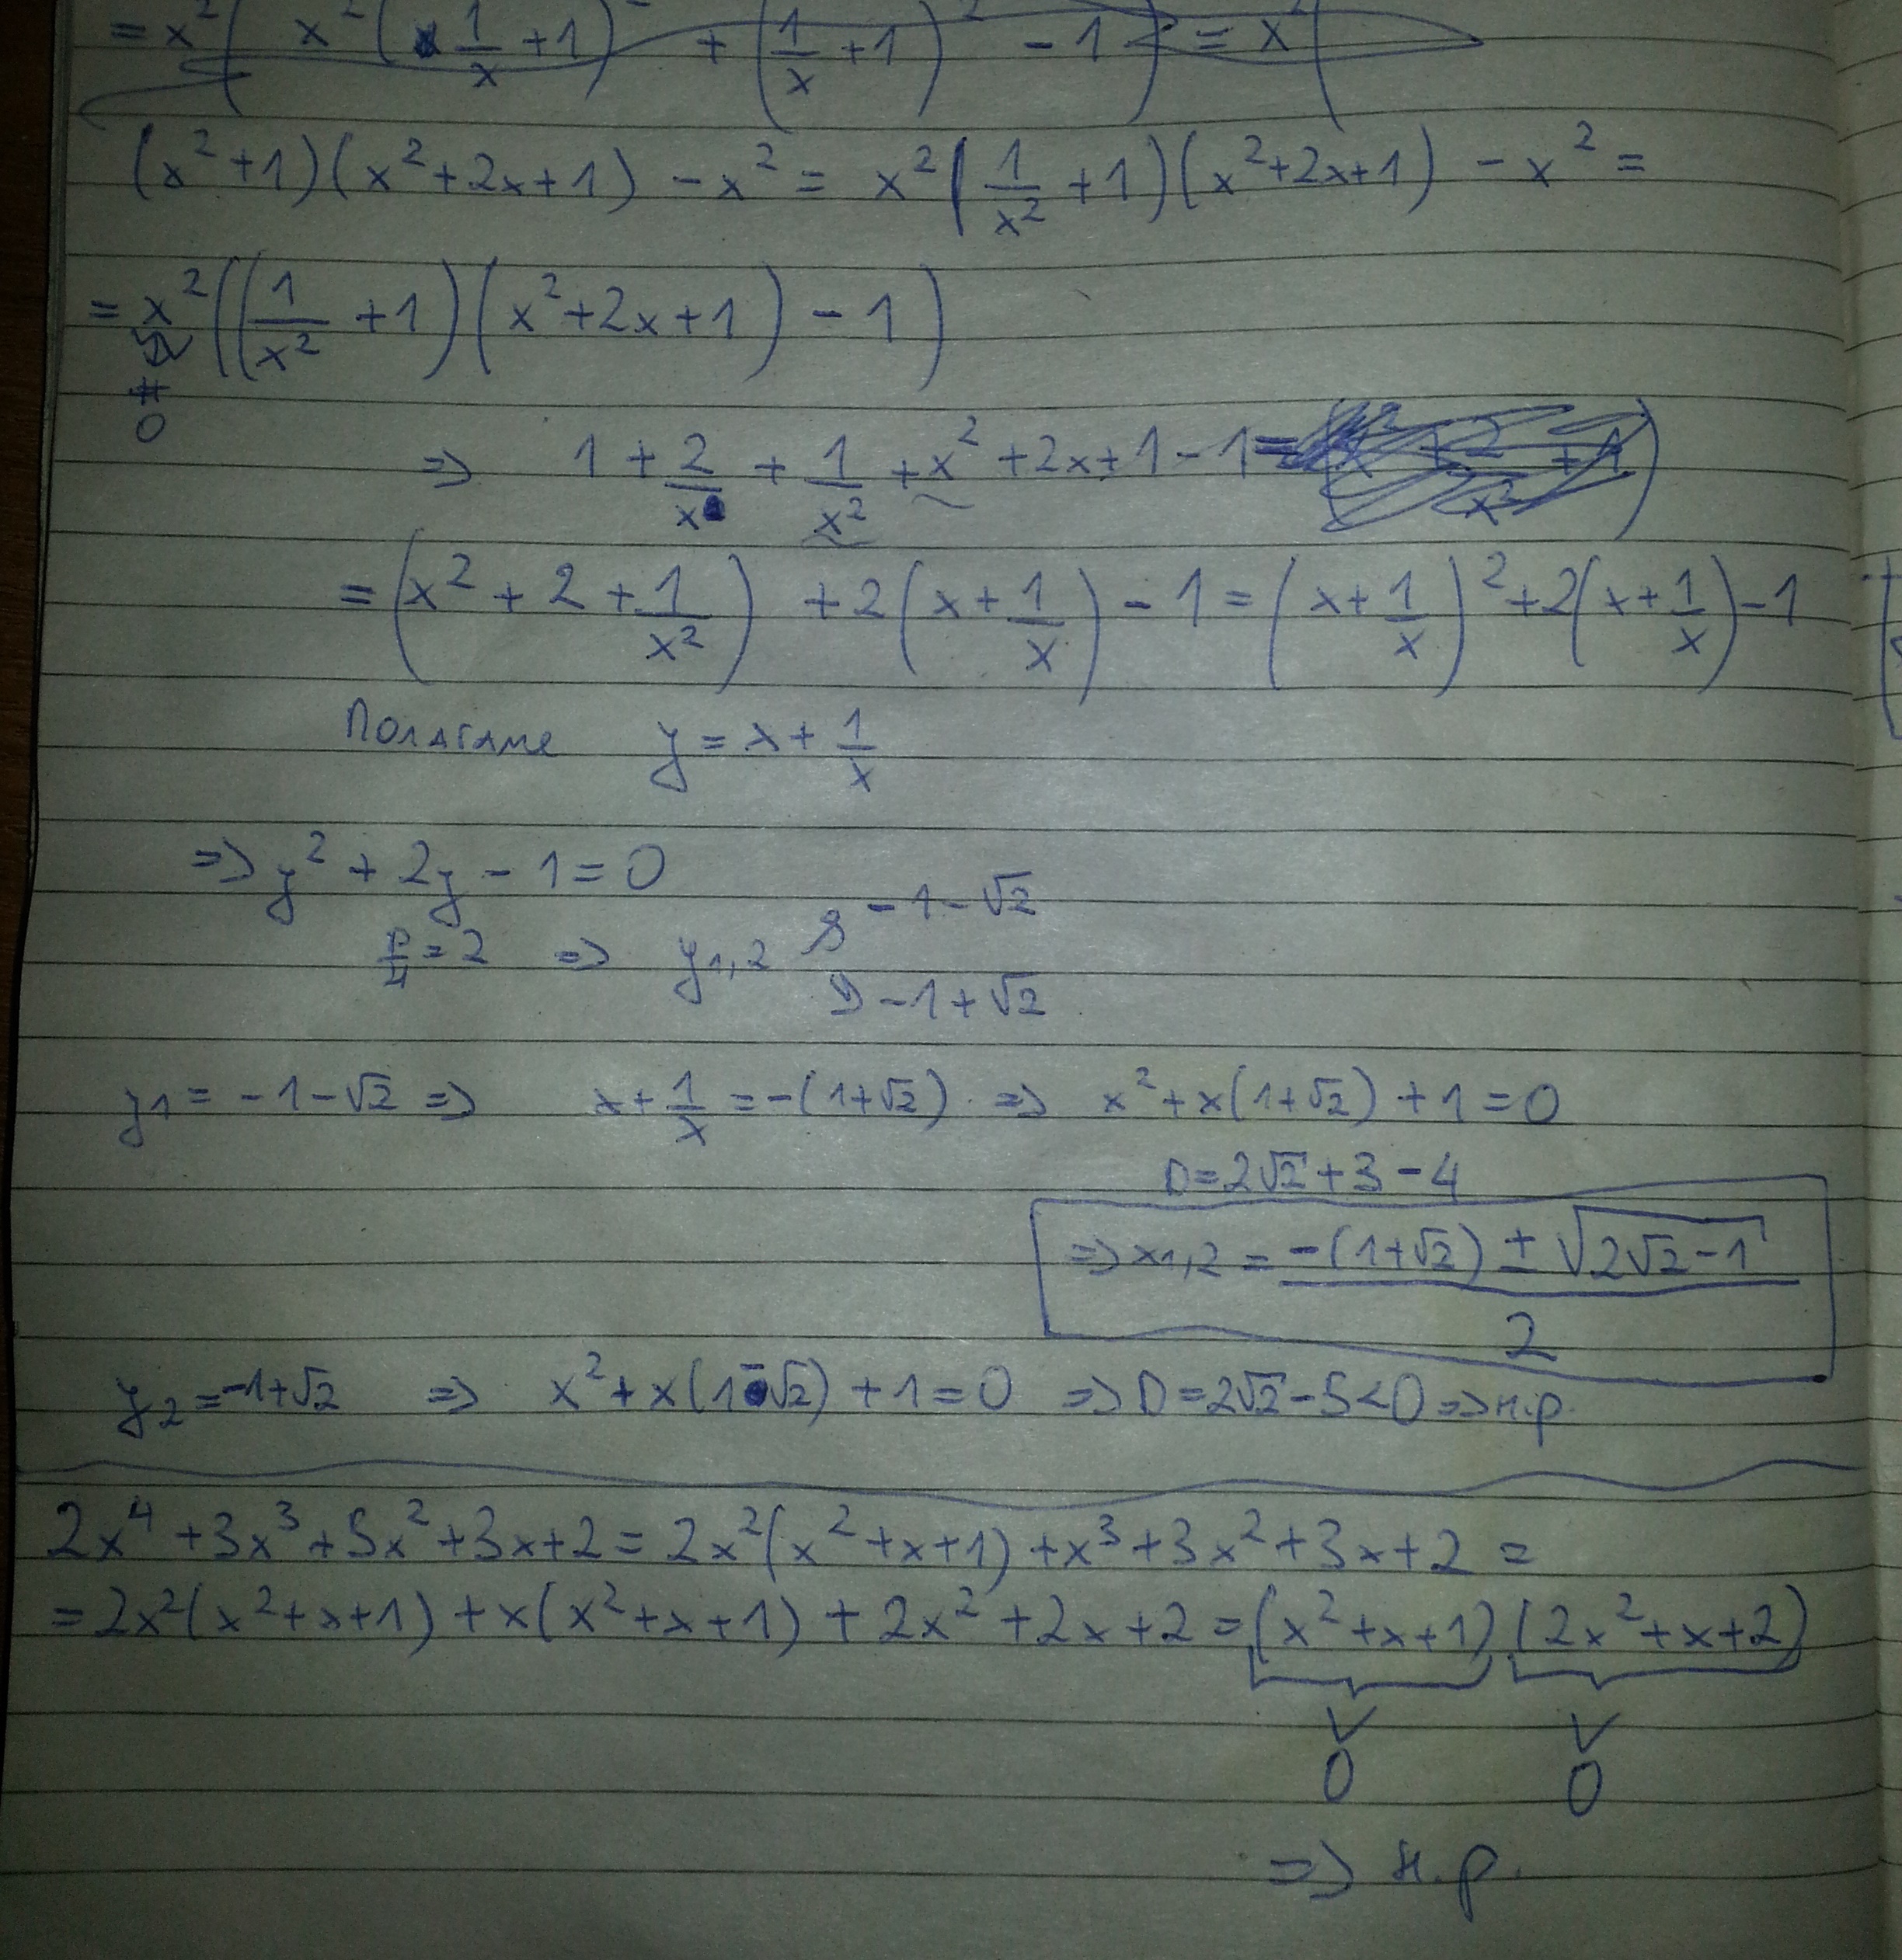 = x²( x²(1/x + 1)² + (1/x + 1)² - 1) = x²(
(x²+1)(x²+2x+1) - x² = x²(1/x² + 1)(x²+2x+1) - x² =
= x²((1/x² + 1)(x²+2x+1) - 1)
≠
0
=> 1 + 2/x + 1/x² + x² + 2x + 1 - 1 =
= (x² + 2 + 1/x²) + 2(x + 1/x) - 1 = (x + 1/x)² + 2(x + 1/x) - 1
Полагаме y = x + 1/x
=> y² + 2y - 1 = 0
-1-√2
D/4 = 2 => y1,2
-1+√2
y1 = -1-√2 => x + 1/x = -(1+√2) => x² + x(1+√2) + 1 = 0
D = 2√2 + 3 - 4
=> x1,2 = (-(1+√2) ± √(2√2-1))/2
y2 = -1+√2 => x² + x(1-√2) + 1 = 0 => D = 2√2 - 5 < 0 => н.р.
2x⁴ + 3x³ + 5x² + 3x + 2 = 2x²(x² + x + 1) + x³ + 3x² + 3x + 2 =
= 2x²(x² + x + 1) + x(x² + x + 1) + 2x² + 2x + 2 = (x² + x + 1)(2x² + x + 2)
∨ ∨
0 0
=> н.р.